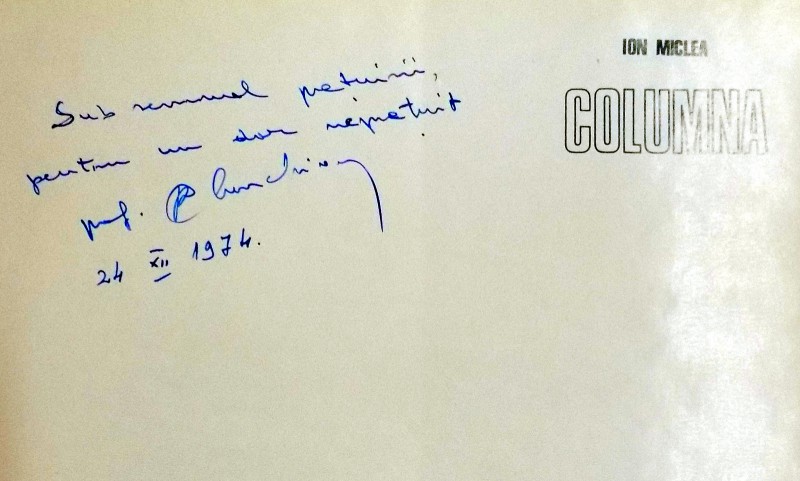 ION MICLEA
COLUMNA
Sub semnul
pentru un dor
prof.
24 XII 1974.